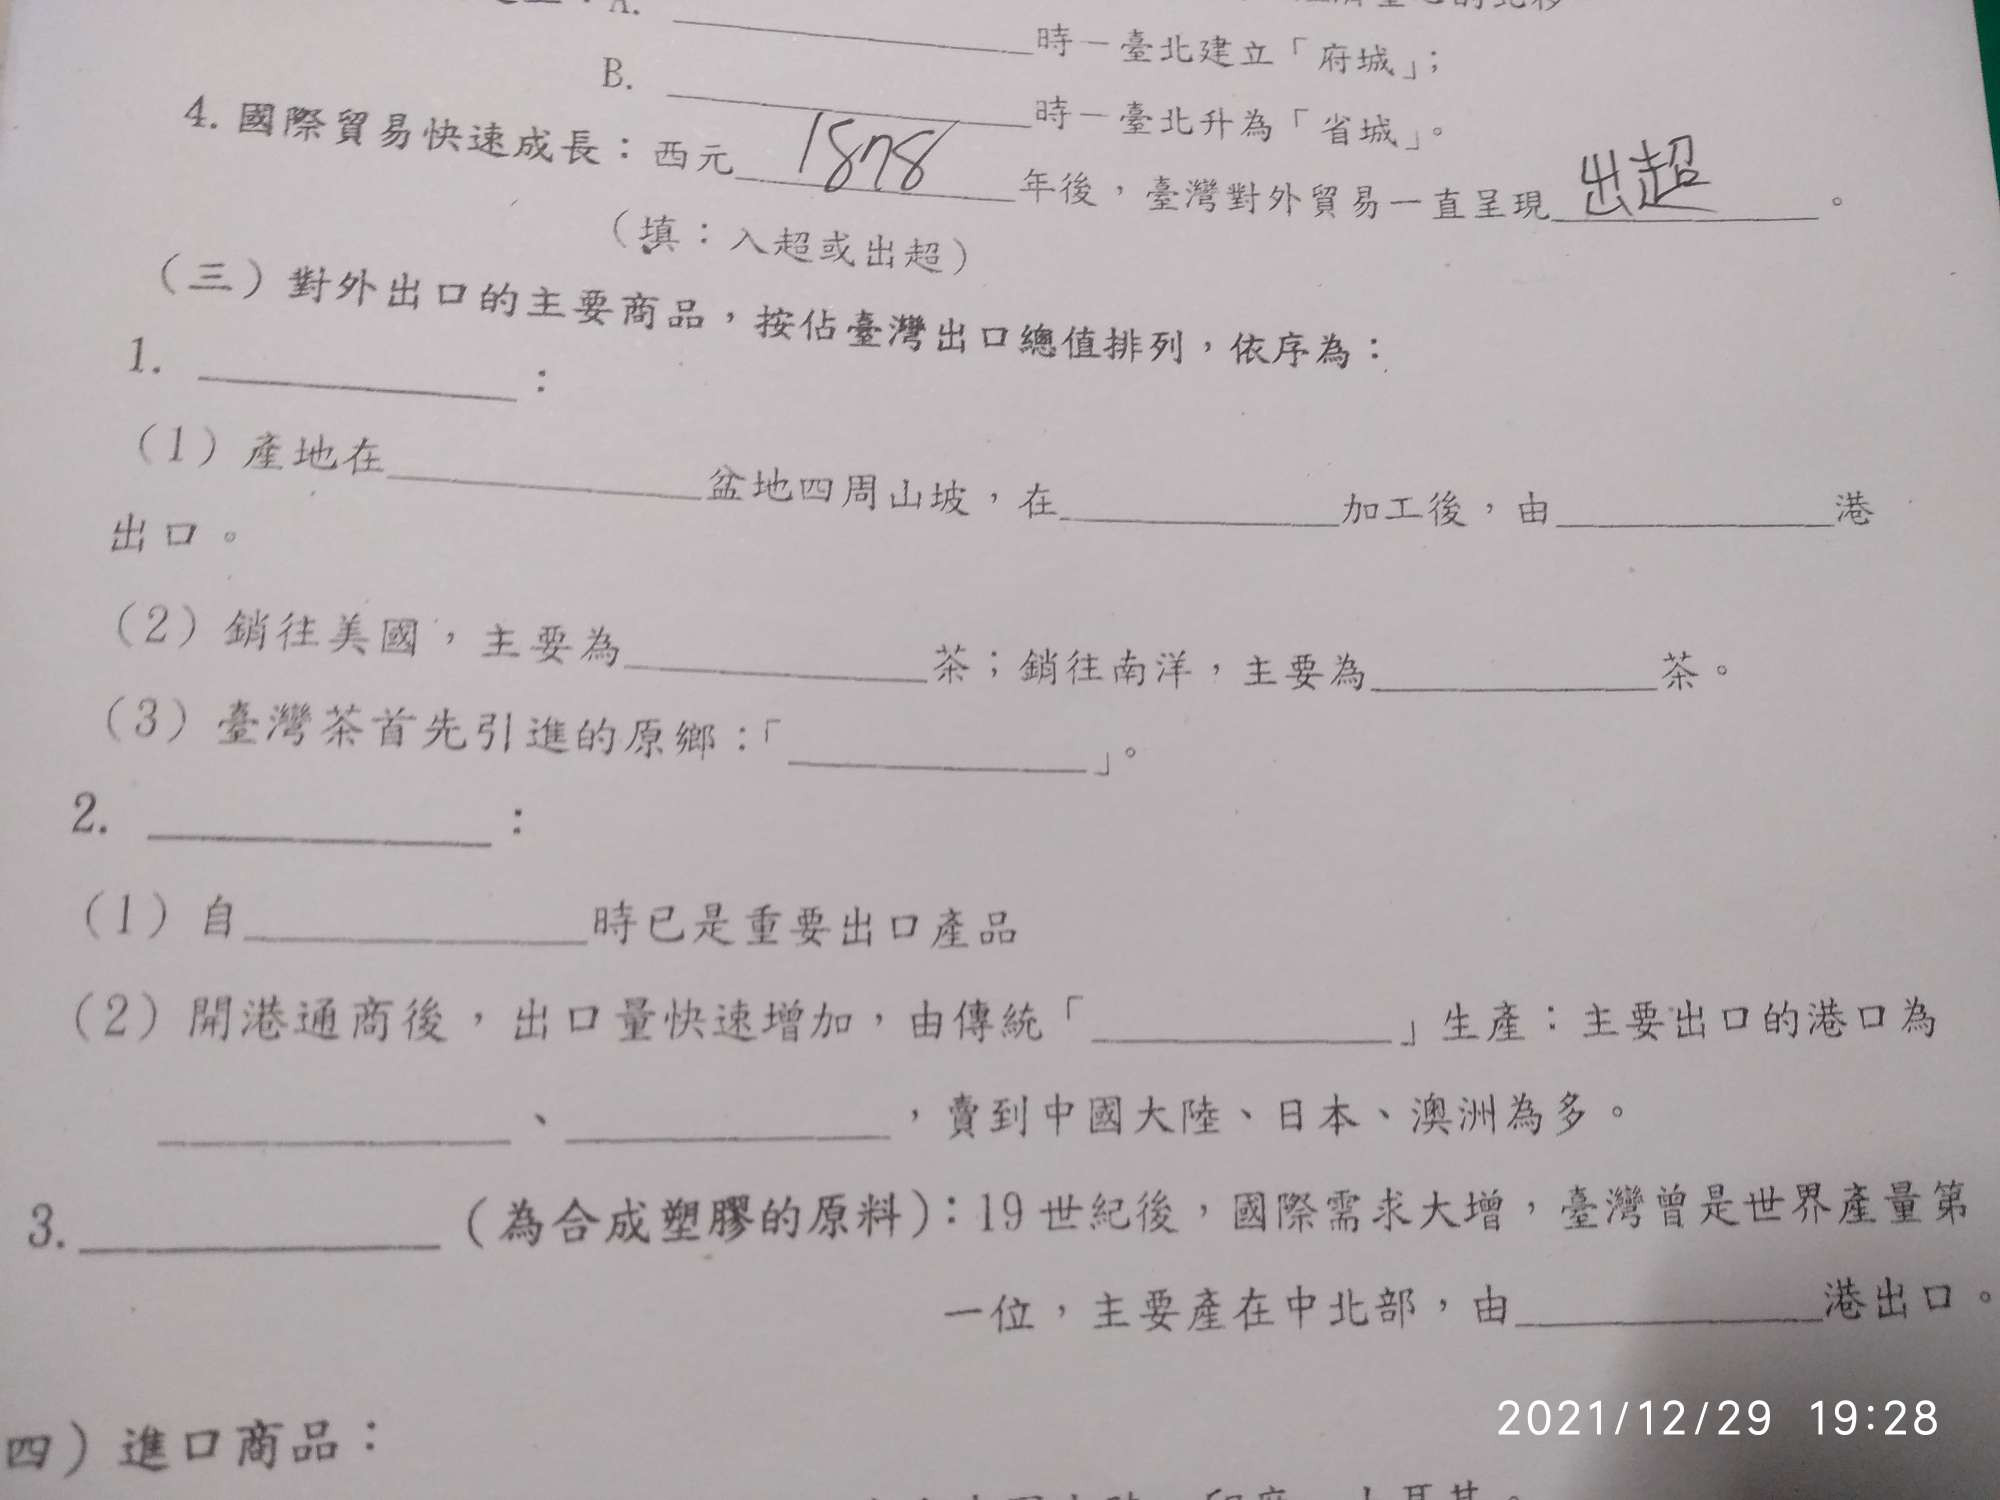 A.____________時－臺北建立「府城」；
B.____________時－臺北升為「省城」。
4.國際貿易快速成長：西元 1878 年後，臺灣對外貿易一直呈現 出超 。
（填：入超或出超）
（三）對外出口的主要商品，按佔臺灣出口總值排列，依序為：
1.____________：
（1）產地在____________盆地四周山坡，在____________加工後，由____________港
出口。
（2）銷往美國，主要為____________茶；銷往南洋，主要為____________茶。
（3）臺灣茶首先引進的原鄉：「____________」。
2.____________：
（1）自____________時已是重要出口產品
（2）開港通商後，出口量快速增加，由傳統「____________」生產：主要出口的港口為
____________、____________，賣到中國大陸、日本、澳洲為多。
3.____________（為合成塑膠的原料）：19世紀後，國際需求大增，臺灣曾是世界產量第
一位，主要產在中北部，由____________港出口。
四）進口商品：
2021/12/29 19:28